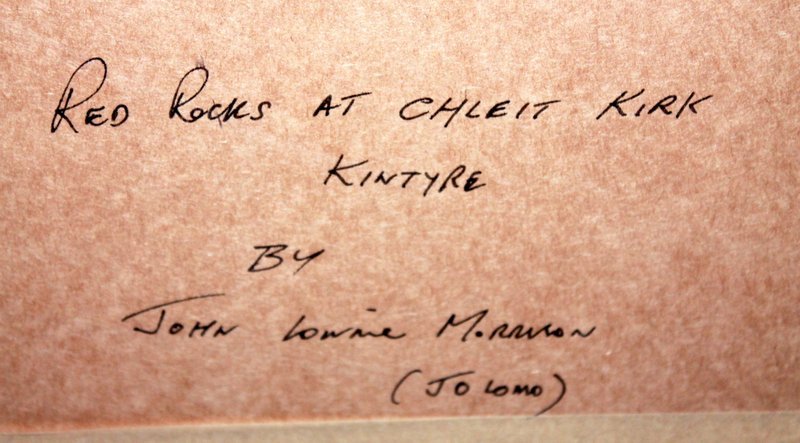 RED ROCKS AT CHLEIT KIRK
KINTYRE
BY
JOHN LOWRIE MORRISON
(JOLOMO)